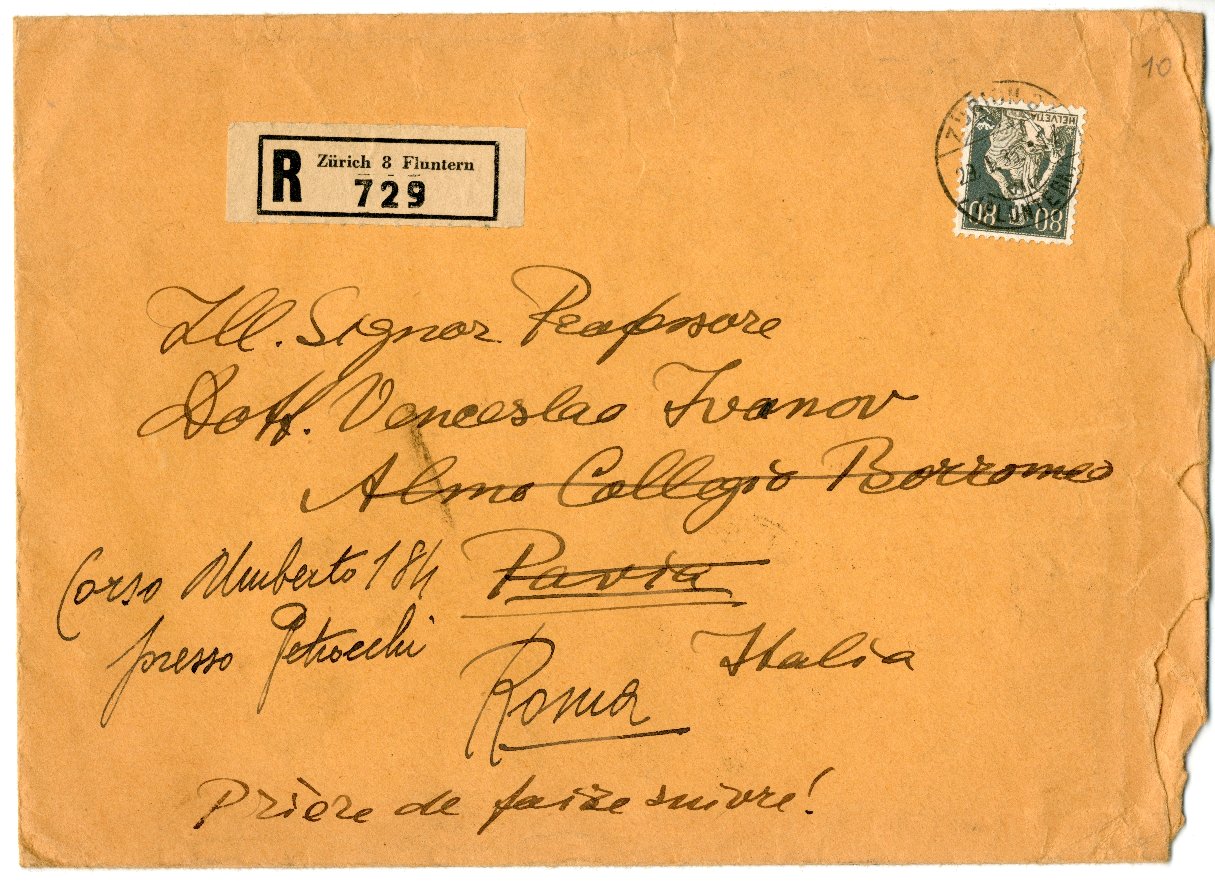 10
ZÜRICH 8
HELVETIA
80 80
FLUNTERN
R Zürich 8 Fluntern
729
Ill. Signor Professore
Dott. Venceslao Ivanov
Almo Collegio Borromeo
Corso Umberto 184 Pavia
presso Petrocchi Italia
Roma
Prière de faire suivre!